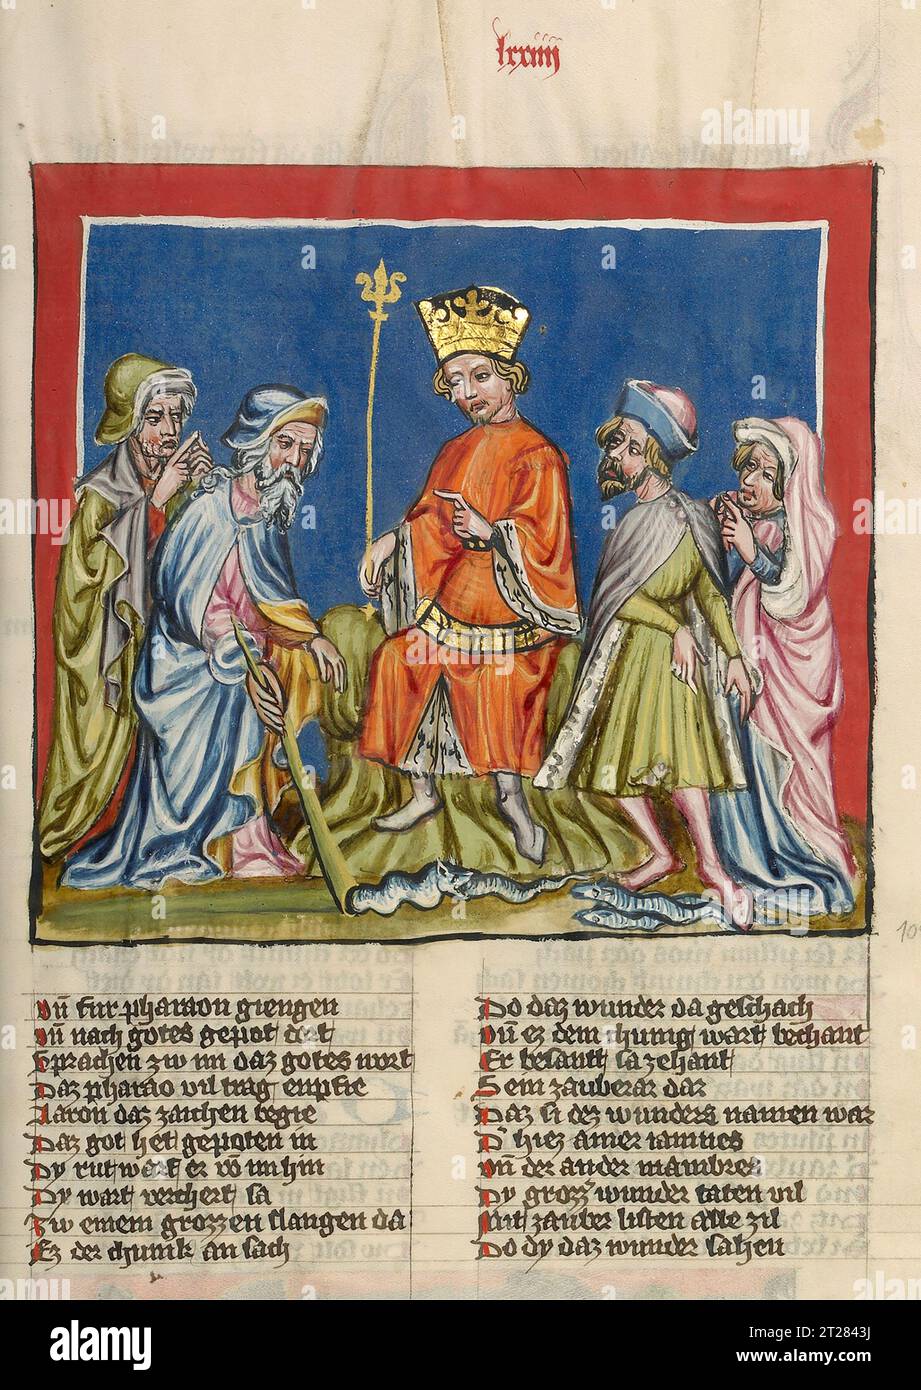 lxxiiij
Vn̄ fur pharaon giengen
Vn̄ nach gotes gepot dort
Sprachen zw im daz gotes wort
Daz pharao vil trag enpfie
Aaron daz zaichen begie
Daz got het gepoten in
Dy rut warf er vō im hin
Dy wart verchert sa
Zw einem grozzen slangen da
Ez der chunik an sach
Do daz wunder da geschach
Vn̄ ez dem chunig wart bechant
Er besantt sa zehant
Sein zauberar dar
Daz si dez wunders namen war
D' hiez ainer iamnes
Vn̄ der ander mambres
Dy grozz wunder taten vil
Mit zauber listen alle zil
Do dy daz wunder sahen
109
alamy
Image ID: 2T2843J
www.alamy.com